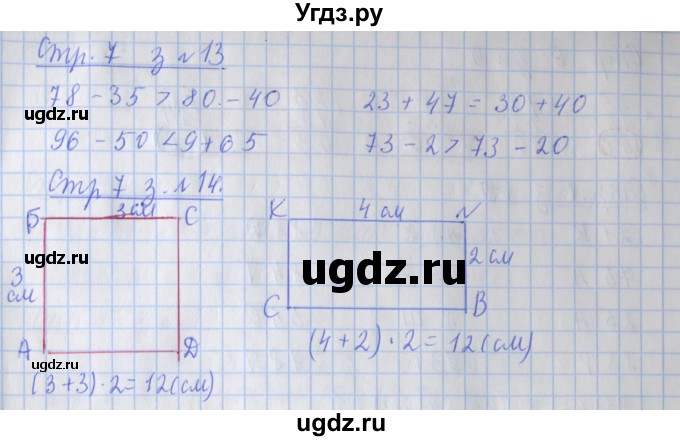 Угдз.ру
Стр. 7 з №13
78 - 35 > 80 - 40
23 + 47 = 30 + 40
ugdz.ru
ugdz.ru
96 - 50 < 9 + 65
73 - 2 > 73 - 20
Стр 7 з. №14.
Б 3 см С
К 4 см N
3 см
2 см
ugdz.ru
ugdz.ru
ugdz.ru
С В
А D
(4 + 2) · 2 = 12 (см)
(3 + 3) · 2 = 12 (см)
ugdz.ru